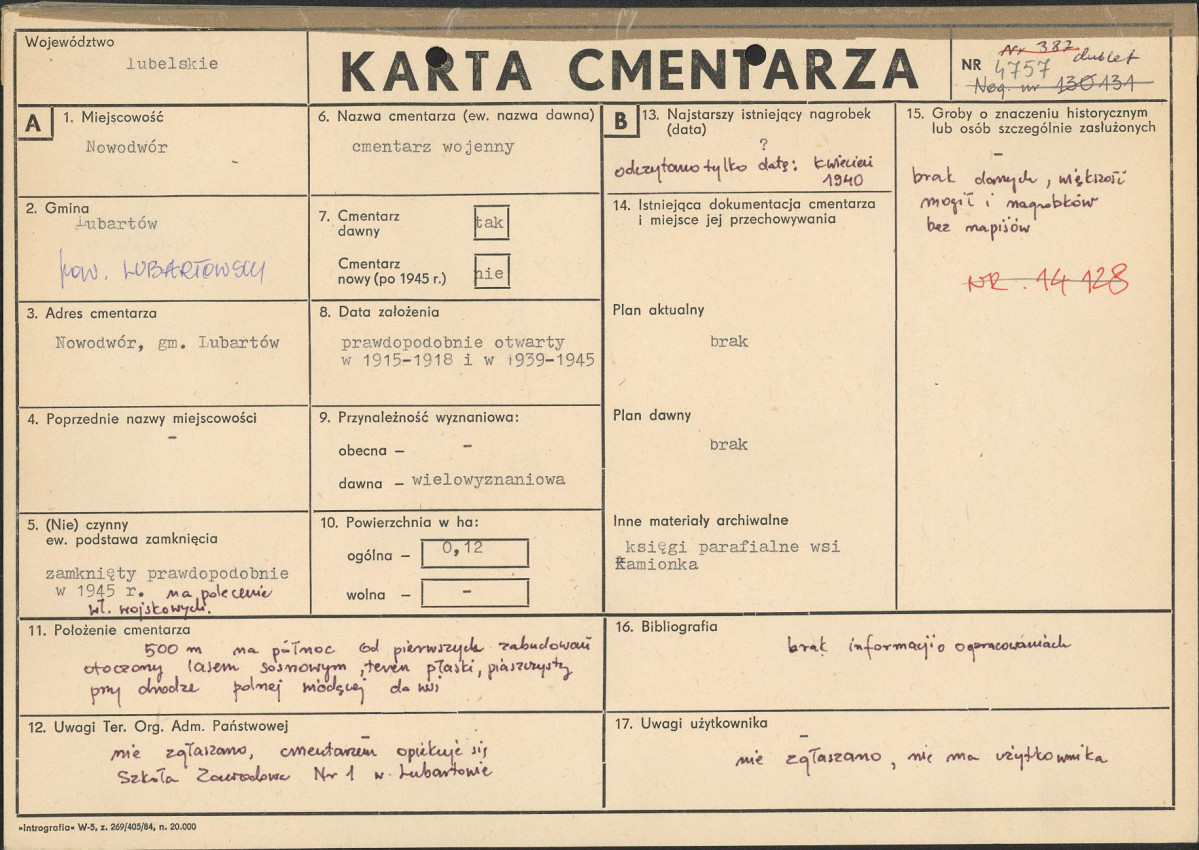 Województwo
lubelskie
KARTA CMENTARZA
Nr 387
NR 4757 dublet
Neg. nr 130 131
A
1. Miejscowość
Nowodwór
2. Gmina
Lubartów
pow. LUBARTOWSKI
3. Adres cmentarza
Nowodwór, gm. Lubartów
4. Poprzednie nazwy miejscowości
–
5. (Nie) czynny
ew. podstawa zamknięcia
zamknięty prawdopodobnie
w 1945 r. na polecenie
wł. wojskowych.
6. Nazwa cmentarza (ew. nazwa dawna)
cmentarz wojenny
7. Cmentarz
dawny
tak
Cmentarz
nowy (po 1945 r.)
nie
8. Data założenia
prawdopodobnie otwarty
w 1915-1918 i w 1939-1945
9. Przynależność wyznaniowa:
obecna – -
dawna – wielowyznaniowa
10. Powierzchnia w ha:
ogólna – 0,12
wolna – -
B
13. Najstarszy istniejący nagrobek
(data)
?
odczytano tylko datę: kwiecień
1940
14. Istniejąca dokumentacja cmentarza
i miejsce jej przechowywania
Plan aktualny
brak
Plan dawny
brak
Inne materiały archiwalne
księgi parafialne wsi
Kamionka
15. Groby o znaczeniu historycznym
lub osób szczególnie zasłużonych
–
brak danych, większość
mogił i nagrobków
bez napisów
NR. 14 128
11. Położenie cmentarza
500 m na północ od pierwszych zabudowań
otoczony lasem sosnowym, teren płaski, piaszczysty
przy drodze polnej wiodącej do wsi
16. Bibliografia
brak informacji o opracowaniach
12. Uwagi Ter. Org. Adm. Państwowej
nie zgłaszano, cmentarzem opiekuje się
Szkoła Zawodowa Nr 1 w Lubartowie
17. Uwagi użytkownika
–
nie zgłaszano, nie ma użytkownika
»Intrografia« W-5, z. 269/405/84, n. 20.000